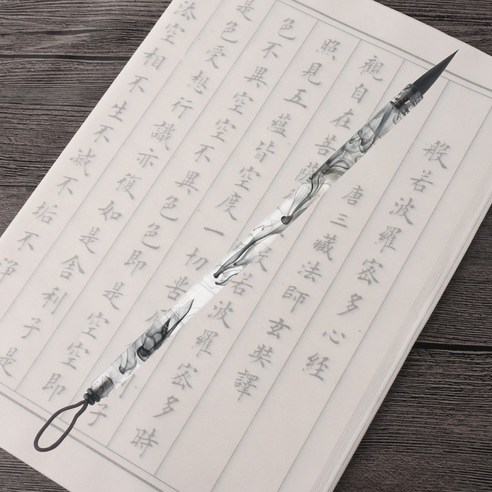 般若波羅密多心經
唐三藏法師玄奘譯
觀自在菩薩若波羅密多時
照見五蘊皆空度一切苦子
色不異空空不異色色即是空空即
是色受想行識亦復如是舍利子是
法空相不生不滅不垢不淨